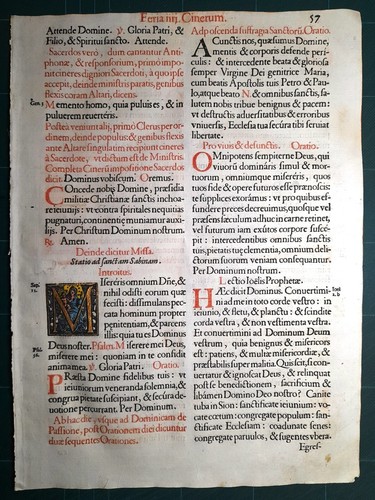 Feria iiij. Cinerum. 57
Attende Domine. ℣. Gloria Patri, &
Filio, & Spiritui sancto. Attende.
Sacerdos verò, dum cantantur Anti-
phonæ, & responsorium, primò impo-
nit cineres digniori Sacerdoti, à quo ipse
accepit, deinde ministris paratis, genibus
flexis coram Altari, dicens.
Memento homo, quia puluis es, & in
puluerem reuerteris.
Postea veniunt alij, primò Clerus per or-
dinem, deinde populus: & genibus flexis
ante Altare singulatim recipiunt cineres
à Sacerdote, vt dictum est de Ministris.
Completa Cinerum impositione Sacerdos
dicit. Dominus vobiscum. Oremus.
Concede nobis Domine, præsidia
militiæ Christianæ sanctis inchoa-
re ieiunijs: vt contra spiritales nequitias
pugnaturi, continentiæ muniamur auxi-
lijs. Per Christum Dominum nostrum.
℟. Amen.
Deinde dicitur Missa.
Statio ad sanctam Sabinam.
Introitus.
Sap. 11.
Misereris omnium Dñe, &
nihil odisti eorum quæ
fecisti: dissimulans pec-
cata hominum propter
pœnitentiam, & parcens
illis: quia tu es Dominus
Deus noster. Psalm. Miserere mei Deus,
miserere mei: quoniam in te confidit
anima mea. ℣. Gloria Patri. Oratio.
Præsta Domine fidelibus tuis: vt
ieiuniorum veneranda solemnia, &
congrua pietate suscipiant, & secura de-
uotione percurrant. Per Dominum.
Ab hac die, vsque ad Dominicam de
Passione, post Orationem diei dicuntur
duæ sequentes Orationes.
Ad poscenda suffragia Sanctorũ. Oratio.
A Cunctis nos, quæsumus Domine,
mentis & corporis defende peri-
culis: & intercedente beata & gloriosa
semper Virgine Dei genitrice Maria,
cum beatis Apostolis tuis Petro & Pau-
lo, atque beato N. & omnibus sanctis, sa-
lutem nobis tribue benignus & pacem:
vt destructis aduersitatibus & erroribus
vniuersis, Ecclesia tua secura tibi seruiat
libertate.
Pro viuis & defunctis. Oratio.
Omnipotens sempiterne Deus, qui
viuorũ dominaris simul & mor-
tuorum, omniumque misereris, quos
tuos fide & opere futuros esse prænoscis:
te supplices exoramus: vt pro quibus ef-
fundere preces decreuimus, quosque vel
præsens sæculum adhuc in carne retinet,
vel futurum iam exutos corpore susce-
pit: intercedentibus omnibus sanctis
tuis, pietatis tuæ clementia, omnium delic-
torum suorum veniam consequantur.
Per Dominum nostrum.
Lectio Ioëlis Prophetæ.
Hæc dicit Dominus. Conuertimi-
ni ad me in toto corde vestro: in
ieiunio, & fletu, & planctu: & scindite
corda vestra, & non vestimenta vestra.
Et conuertimini ad Dominum Deum
vestrum, quia benignus & misericors
est: patiens, & multæ misericordiæ, &
præstabilis super malitia. Quis scit, si con-
uertatur & ignoscat Deus, & relinquat
post se benedictionem, sacrificium &
libamen Domino Deo nostro? Canite
tuba in Sion: sanctificate ieiunium: vo-
cate cœtum: congregate populum: san-
ctificate Ecclesiam: coadunate senes:
congregate paruulos, & sugentes vbera.
Egres-